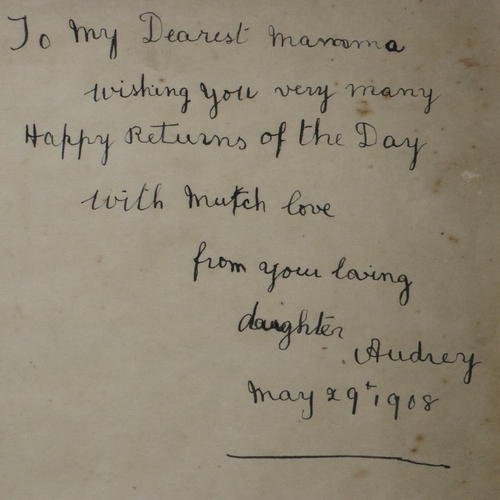 To My Dearest Mamma
wishing you very many
Happy Returns of the Day
with Mutch love
from your loving
daughter
Audrey
May 29t 1908